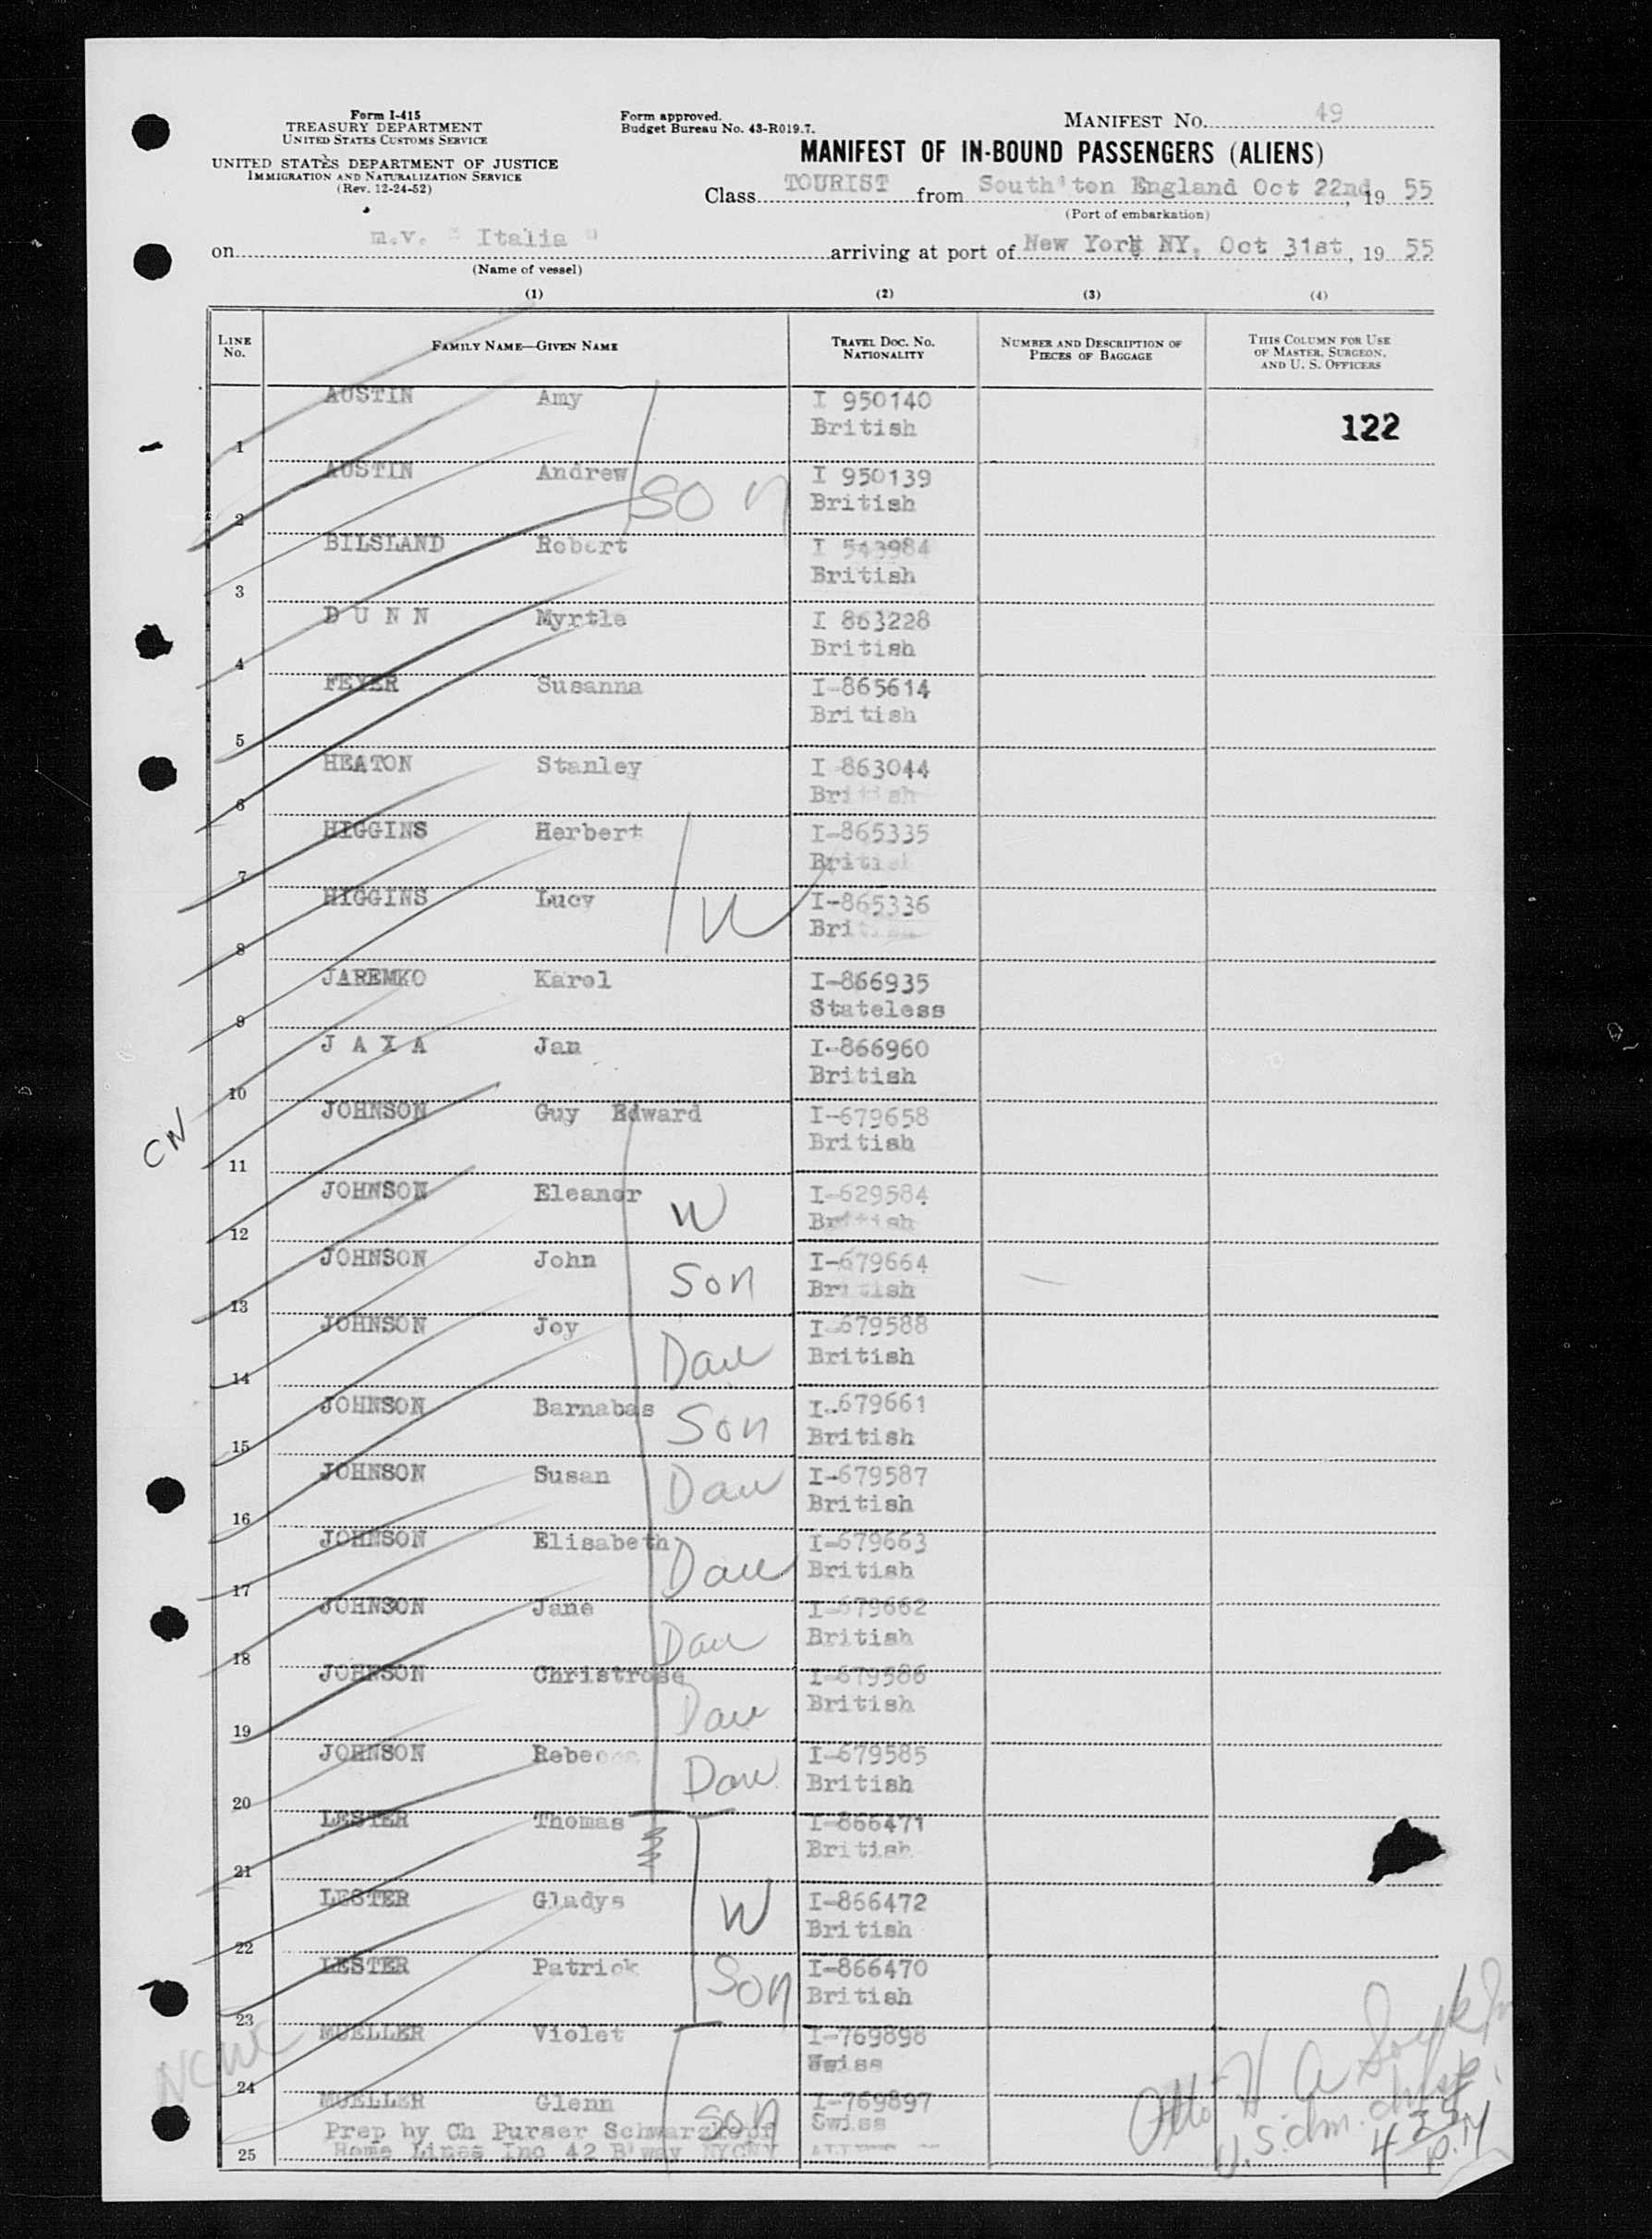 Form I-415
TREASURY DEPARTMENT
UNITED STATES CUSTOMS SERVICE
UNITED STATES DEPARTMENT OF JUSTICE
IMMIGRATION AND NATURALIZATION SERVICE
(Rev. 12-24-52)
Form approved.
Budget Bureau No. 43-R019.7.
MANIFEST NO. 49
MANIFEST OF IN-BOUND PASSENGERS (ALIENS)
Class TOURIST from South'ton England Oct 22nd, 19 55
(Port of embarkation)
on m.v. " Italia " arriving at port of New York NY, Oct 31st, 19 55
(Name of vessel)
(1) (2) (3) (4)
LINE NO. FAMILY NAME—GIVEN NAME TRAVEL DOC. NO. NATIONALITY NUMBER AND DESCRIPTION OF PIECES OF BAGGAGE THIS COLUMN FOR USE OF MASTER, SURGEON, AND U. S. OFFICERS
AUSTIN Amy I 950140
1 British 122
AUSTIN Andrew I 950139
2 son British
BILSLAND Robert I 543984
3 British
D U N N Myrtle I 863228
4 British
FEYER Susanna I-865614
5 British
HEATON Stanley I 863044
6 British
HIGGINS Herbert I-865335
7 British
HIGGINS Lucy I-865336
8 W British
JAREMKO Karol I-866935
9 Stateless
J A X A Jan I-866960
10 British
CN
JOHNSON Guy Edward I-679658
11 British
JOHNSON Eleanor W I-629584
12 British
JOHNSON John I-679664
13 Son British
JOHNSON Joy I-679588
14 Dau British
JOHNSON Barnabas I-679661
15 Son British
JOHNSON Susan I-679587
16 Dau British
JOHNSON Elisabeth I-679663
17 Dau British
JOHNSON Jane I-679662
18 Dau British
JOHNSON Christrose I-679586
19 Dau British
JOHNSON Rebecca I-679585
20 Dau British
LESTER Thomas I-866471
21 British
LESTER Gladys I-866472
22 W British
LESTER Patrick I-866470
23 Son British
MUELLER Violet I-769898
24 Swiss
MUELLER Glenn I-769897
son Swiss
Prep by Ch Purser Schwarzkopf
25 Home Lines Inc 42 B'way NYCNY
Otto H A
U.S. Im.
4 25 P.M